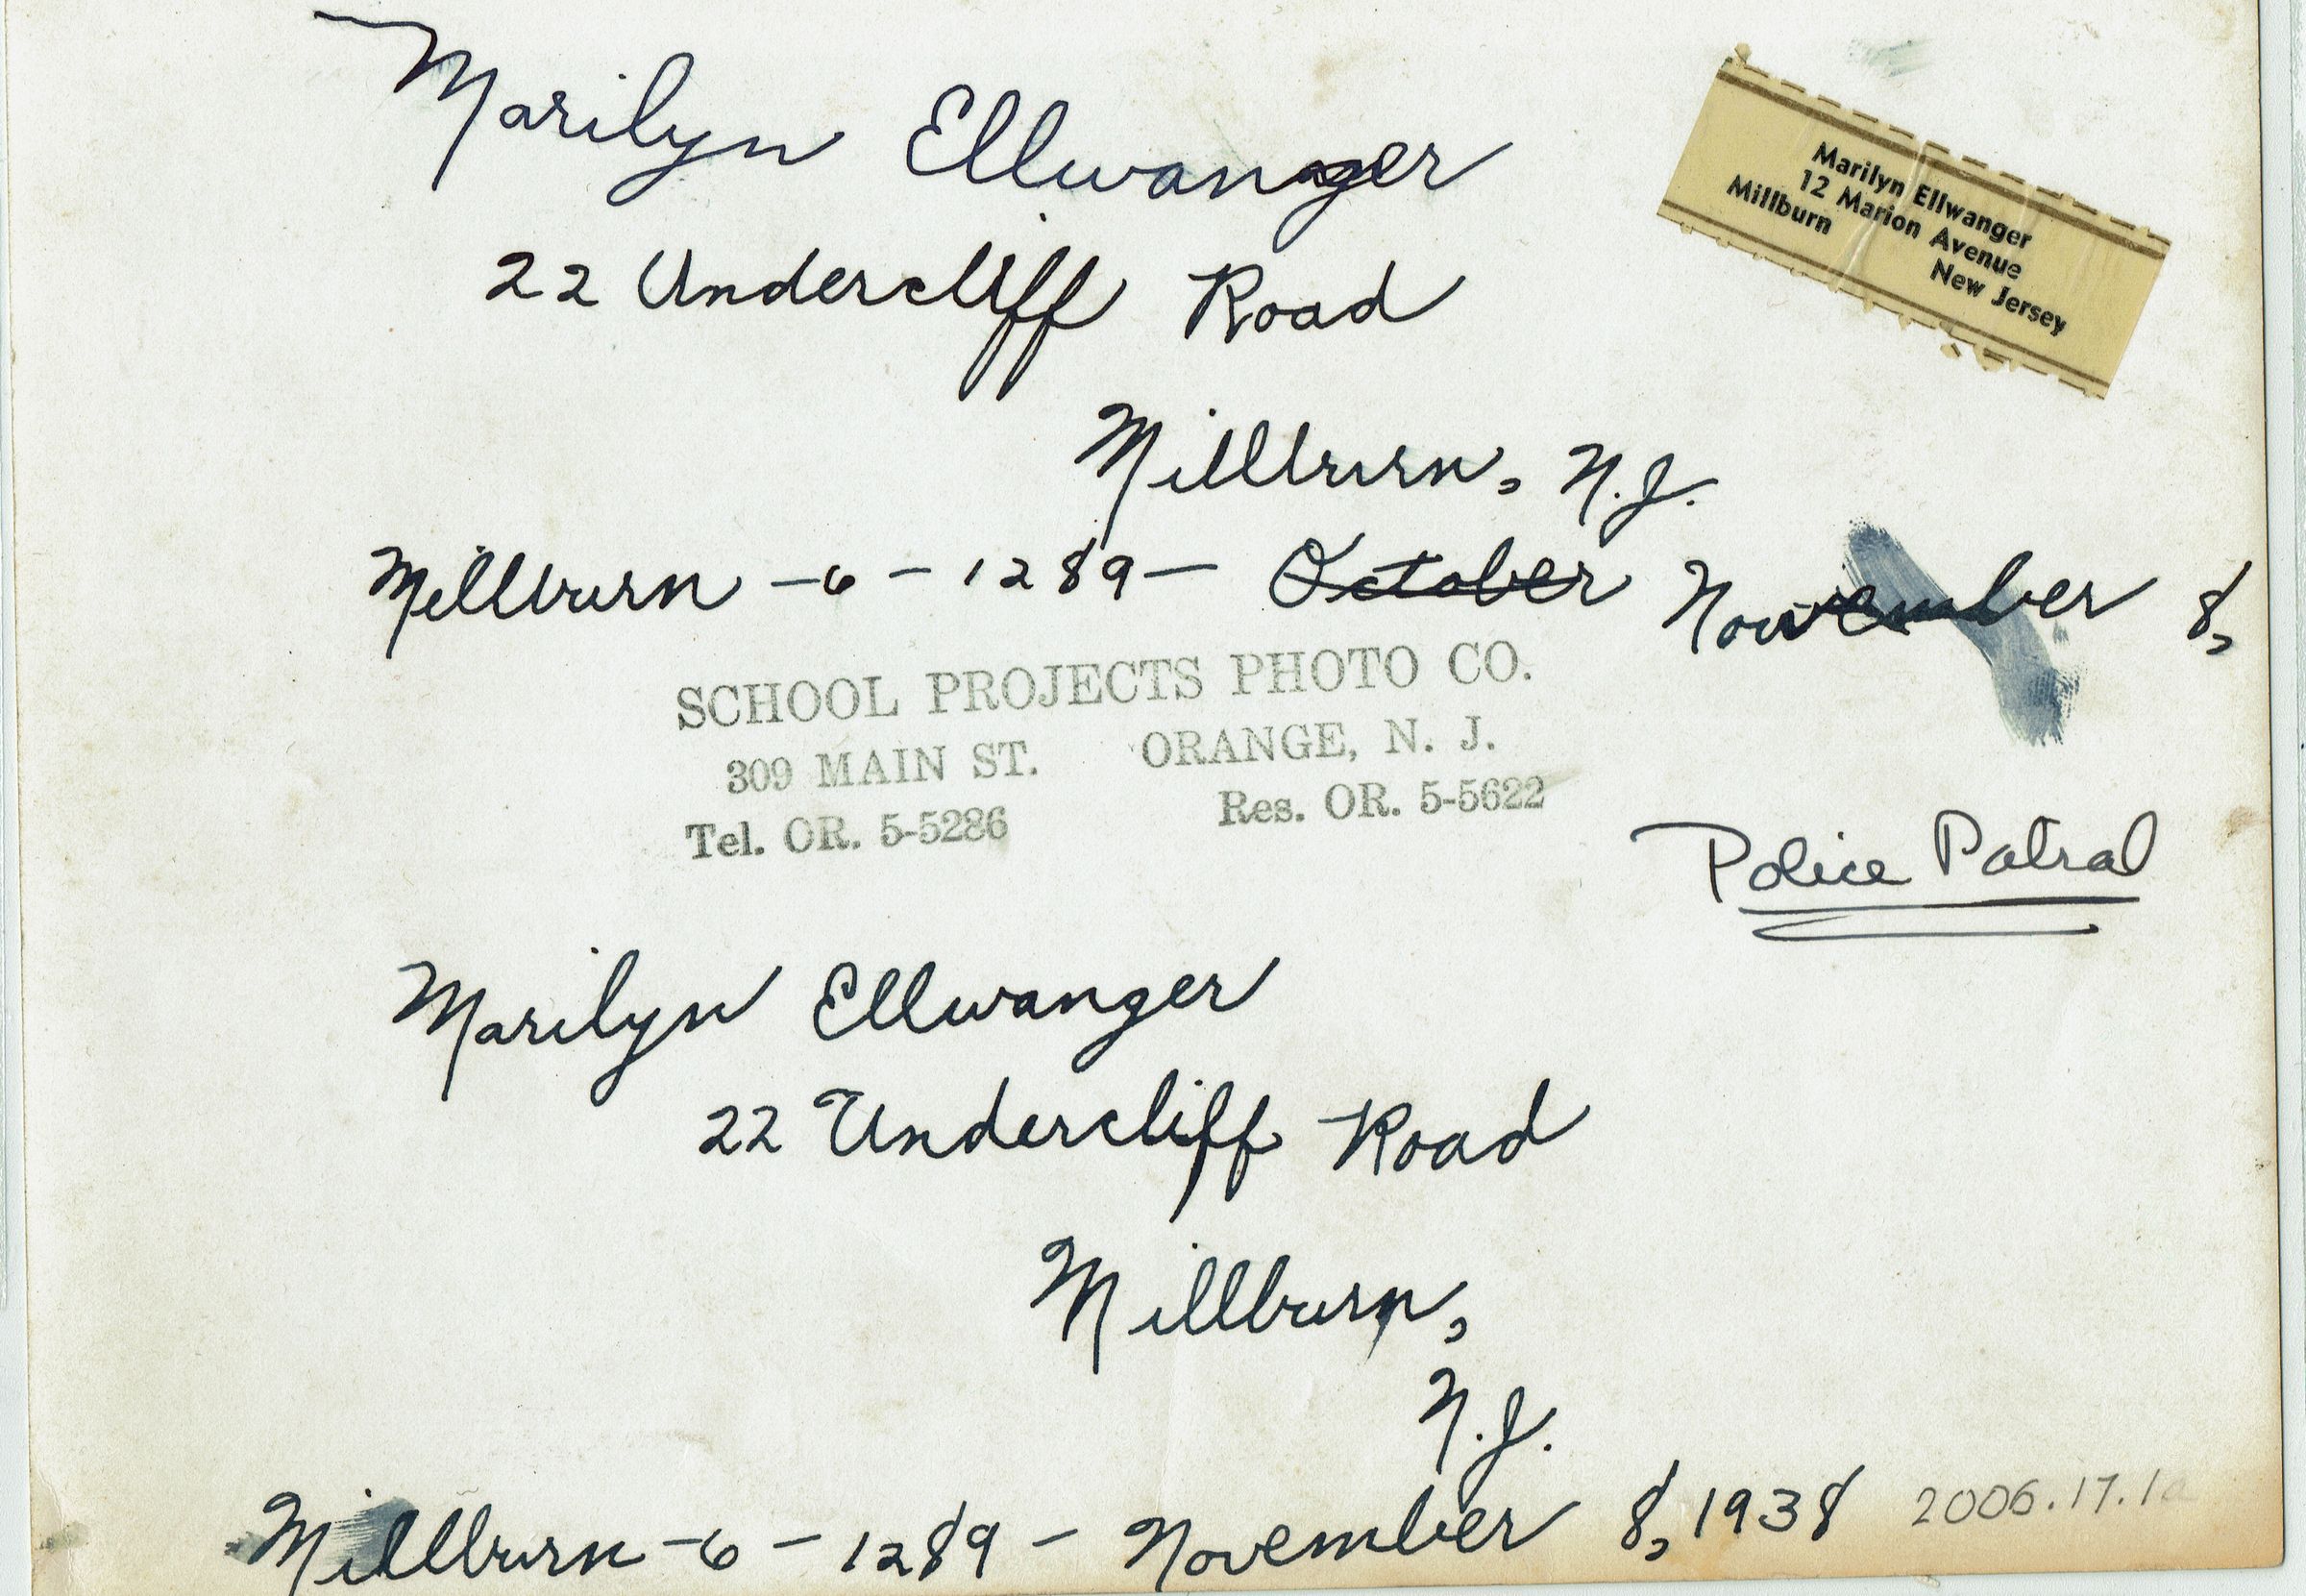 Marilyn Ellwanger
22 Undercliff Road
Millburn, N.J.
Millburn -6 - 1289 - October November 8,
Marilyn Ellwanger
12 Marion Avenue
Millburn New Jersey
SCHOOL PROJECTS PHOTO CO.
309 MAIN ST. ORANGE, N. J.
Tel. OR. 5-5286 Res. OR. 5-5622
Police Patrol
Marilyn Ellwanger
22 Undercliff Road
Millburn,
N.J.
Millburn -6 - 1289 - November 8, 1938